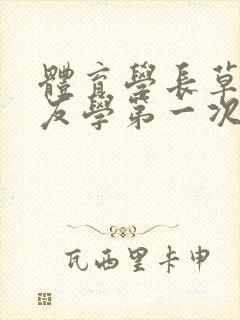 體育學長草
友學第一次
瓦西里卡申